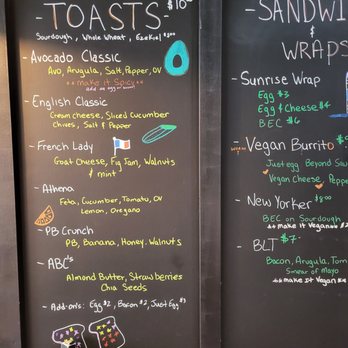 TOASTS- $10
Sourdough, Whole Wheat, Ezekiel $1.00
- Avocado Classic
Avo, Arugula, Salt, Pepper, OV
** make it Spicy **
Add an egg or bacon!
- English Classic
Cream cheese, Sliced Cucumber
Chives, Salt & Pepper
- French Lady
Goat Cheese, Fig Jam, Walnuts
& mint
- Athena
Feta, Cucumber, Tomato, OV
Lemon, Oregano
- PB Crunch
PB, Banana, Honey, Walnuts
- ABC's
Almond Butter, Strawberries
Chia Seeds
- Add-ons: Egg $2, Bacon $2, Just Egg $3
-SANDWI
&
WRAPS
- Sunrise Wrap
Egg $3
Egg & Cheese $4
BEC $6
- Vegan Burrito
Just egg Beyond Sau
Vegan Cheese, Pepper
- New Yorker
BEC on Sourdough
** Make it Vegan
- BLT $7.
Bacon, Arugula, Tom
Smear of Mayo
** Make it Vegan